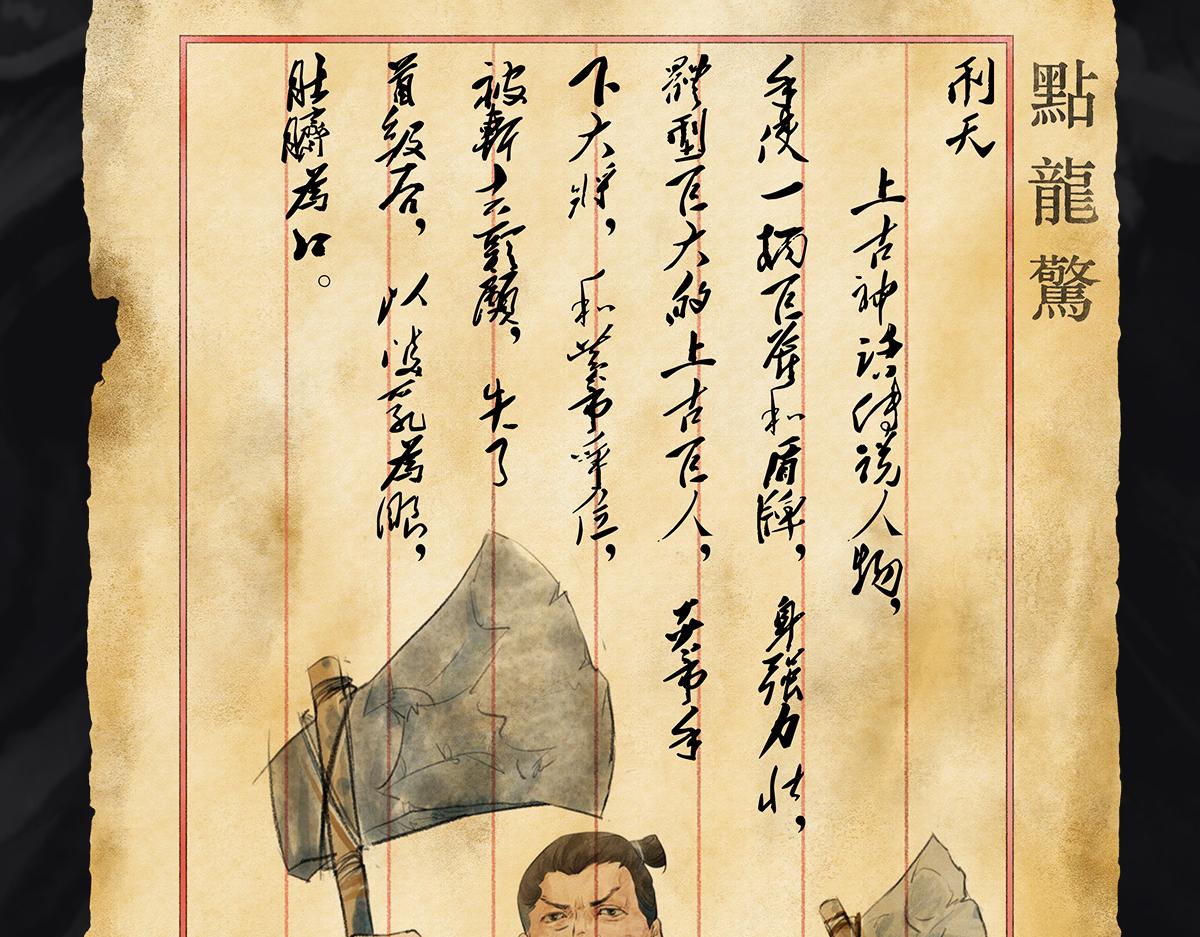 點龍驚
刑天
上古神話傳說人物，
手使一柄巨斧和盾牌，身強力壯，
體型巨大的上古巨人，炎帝手
下大將，和黃帝爭位，
被斬去頭顱，失了
首級后，以雙乳為眼，
肚臍為口。